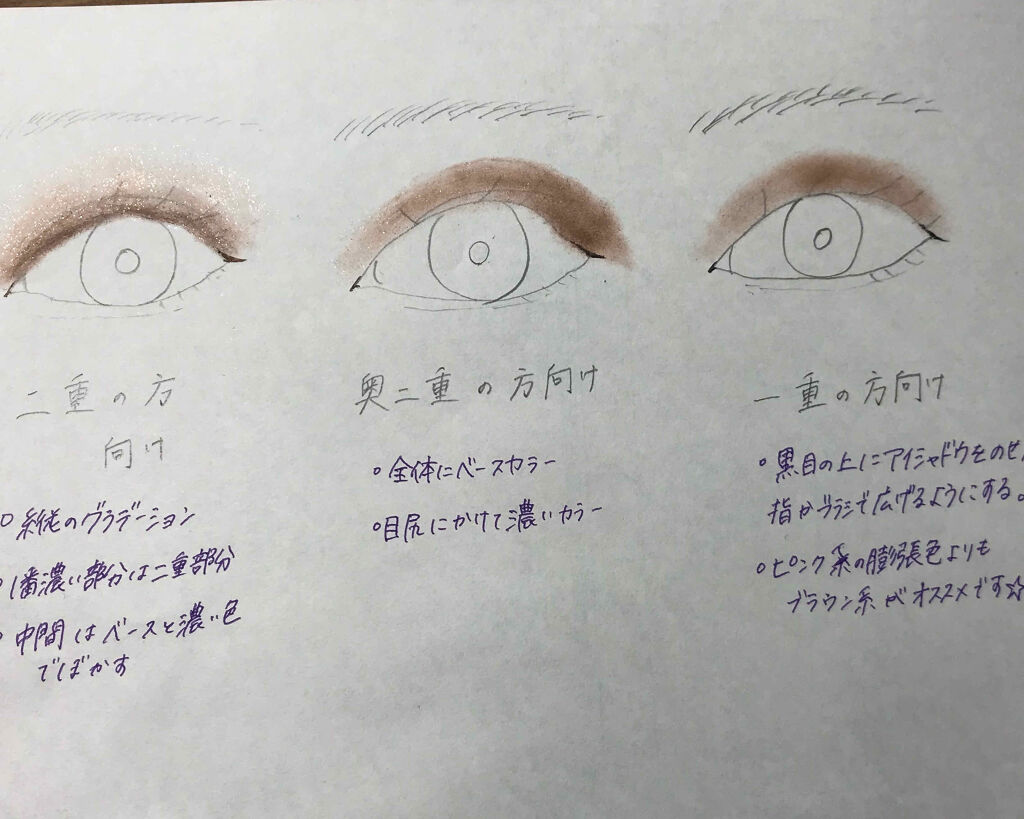 二重の方
向け
○ 縦のグラデーション
○ 1番濃い部分は二重部分
○ 中間はベースと濃い色
でぼかす
奥二重の方向け
○ 全体にベースカラー
○ 目尻にかけて濃いカラー
一重の方向け
○ 黒目の上にアイシャドウをのせ
指かブラシで広げるようにする。
○ ピンク系の膨張色よりも
ブラウン系がオススメです☆